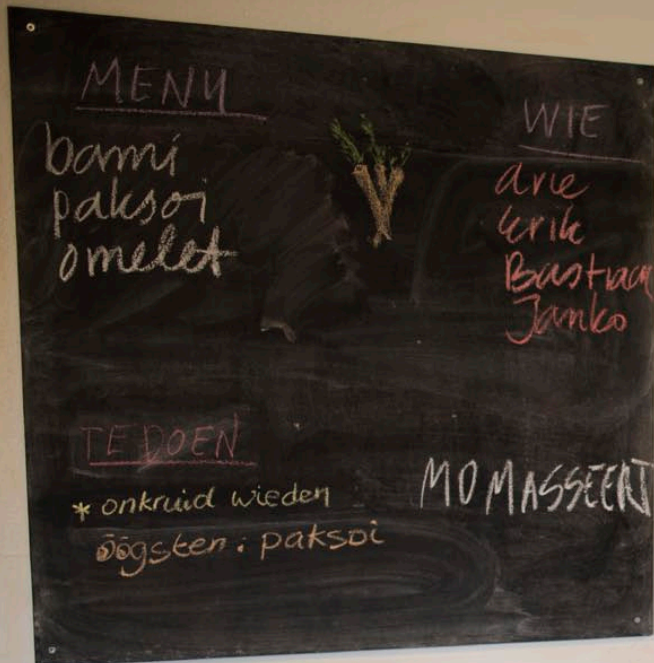 MENU
bami
paksoi
omelet
WIE
arie
Erik
Bastiaan
Janko
TE DOEN
* onkruid wieden
öögsten : paksoi
MO MASSEERT